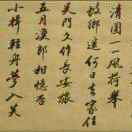 清圓一一風荷舉
故鄉遥何日去家住
吳門久作長安旅
五月漁郎相憶否
小楫輕舟夢入芙